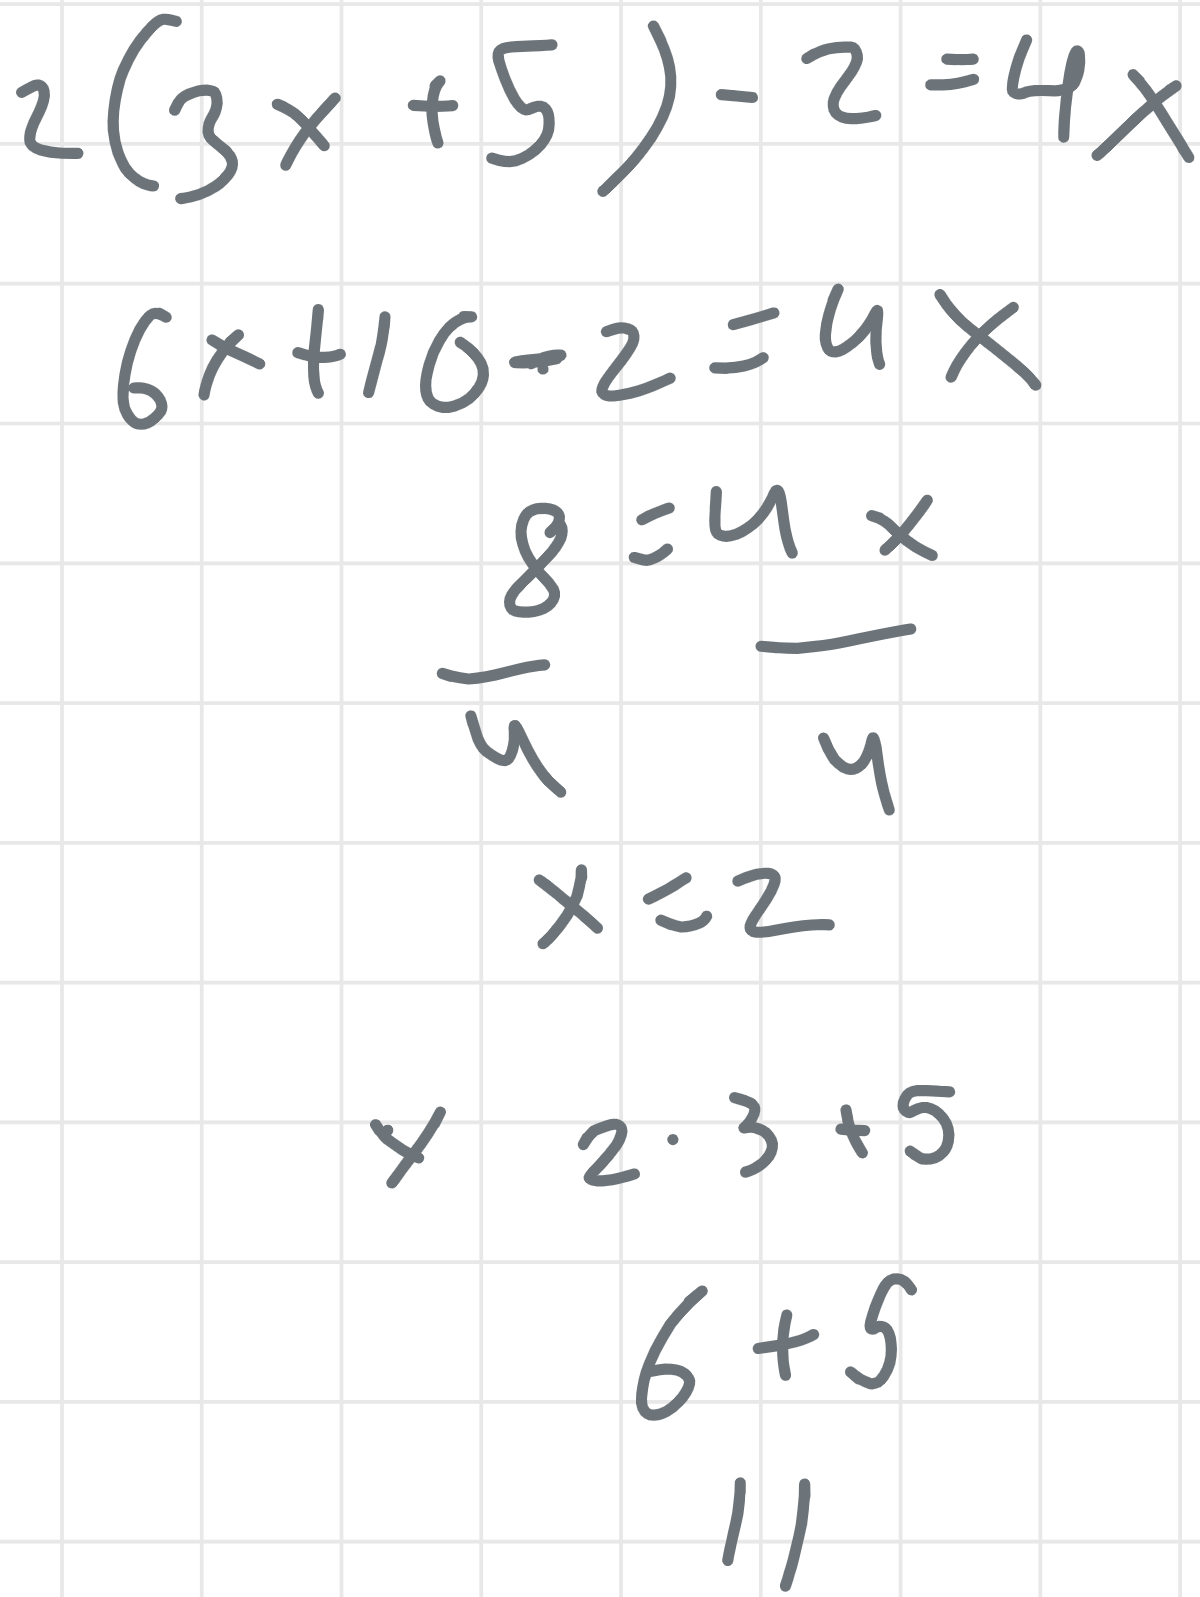 2(3x+5)-2=4x
6x+10-2=4x
8=4x
— —
4 4
x=2
x 2·3+5
6+5
11